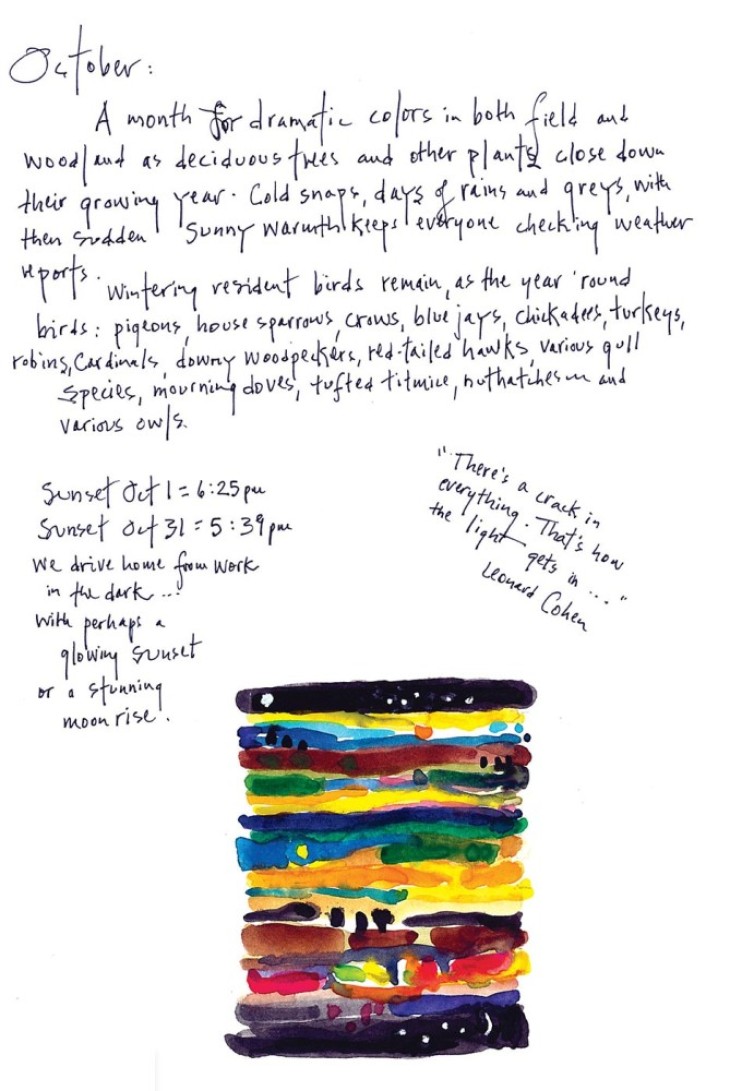 October:
A month for dramatic colors in both field and
woodland as deciduous trees and other plants close down
their growing year. Cold snaps, days of rains and greys, with
then sudden sunny warmth keeps everyone checking weather
reports.
Wintering resident birds remain, as the year 'round
birds: pigeons, house sparrows, crows, blue jays, chickadees, turkeys,
robins, Cardinals, downy woodpeckers, red-tailed hawks, various gull
species, mourning doves, tufted titmice, nuthatches and
various owls.
Sunset Oct 1 = 6:25pm
Sunset Oct 31 = 5:39pm
We drive home from work
in the dark...
With perhaps a
glowing sunset
or a stunning
moon rise.
"There's a crack in
everything. That's how
the light gets in ..."
Leonard Cohen